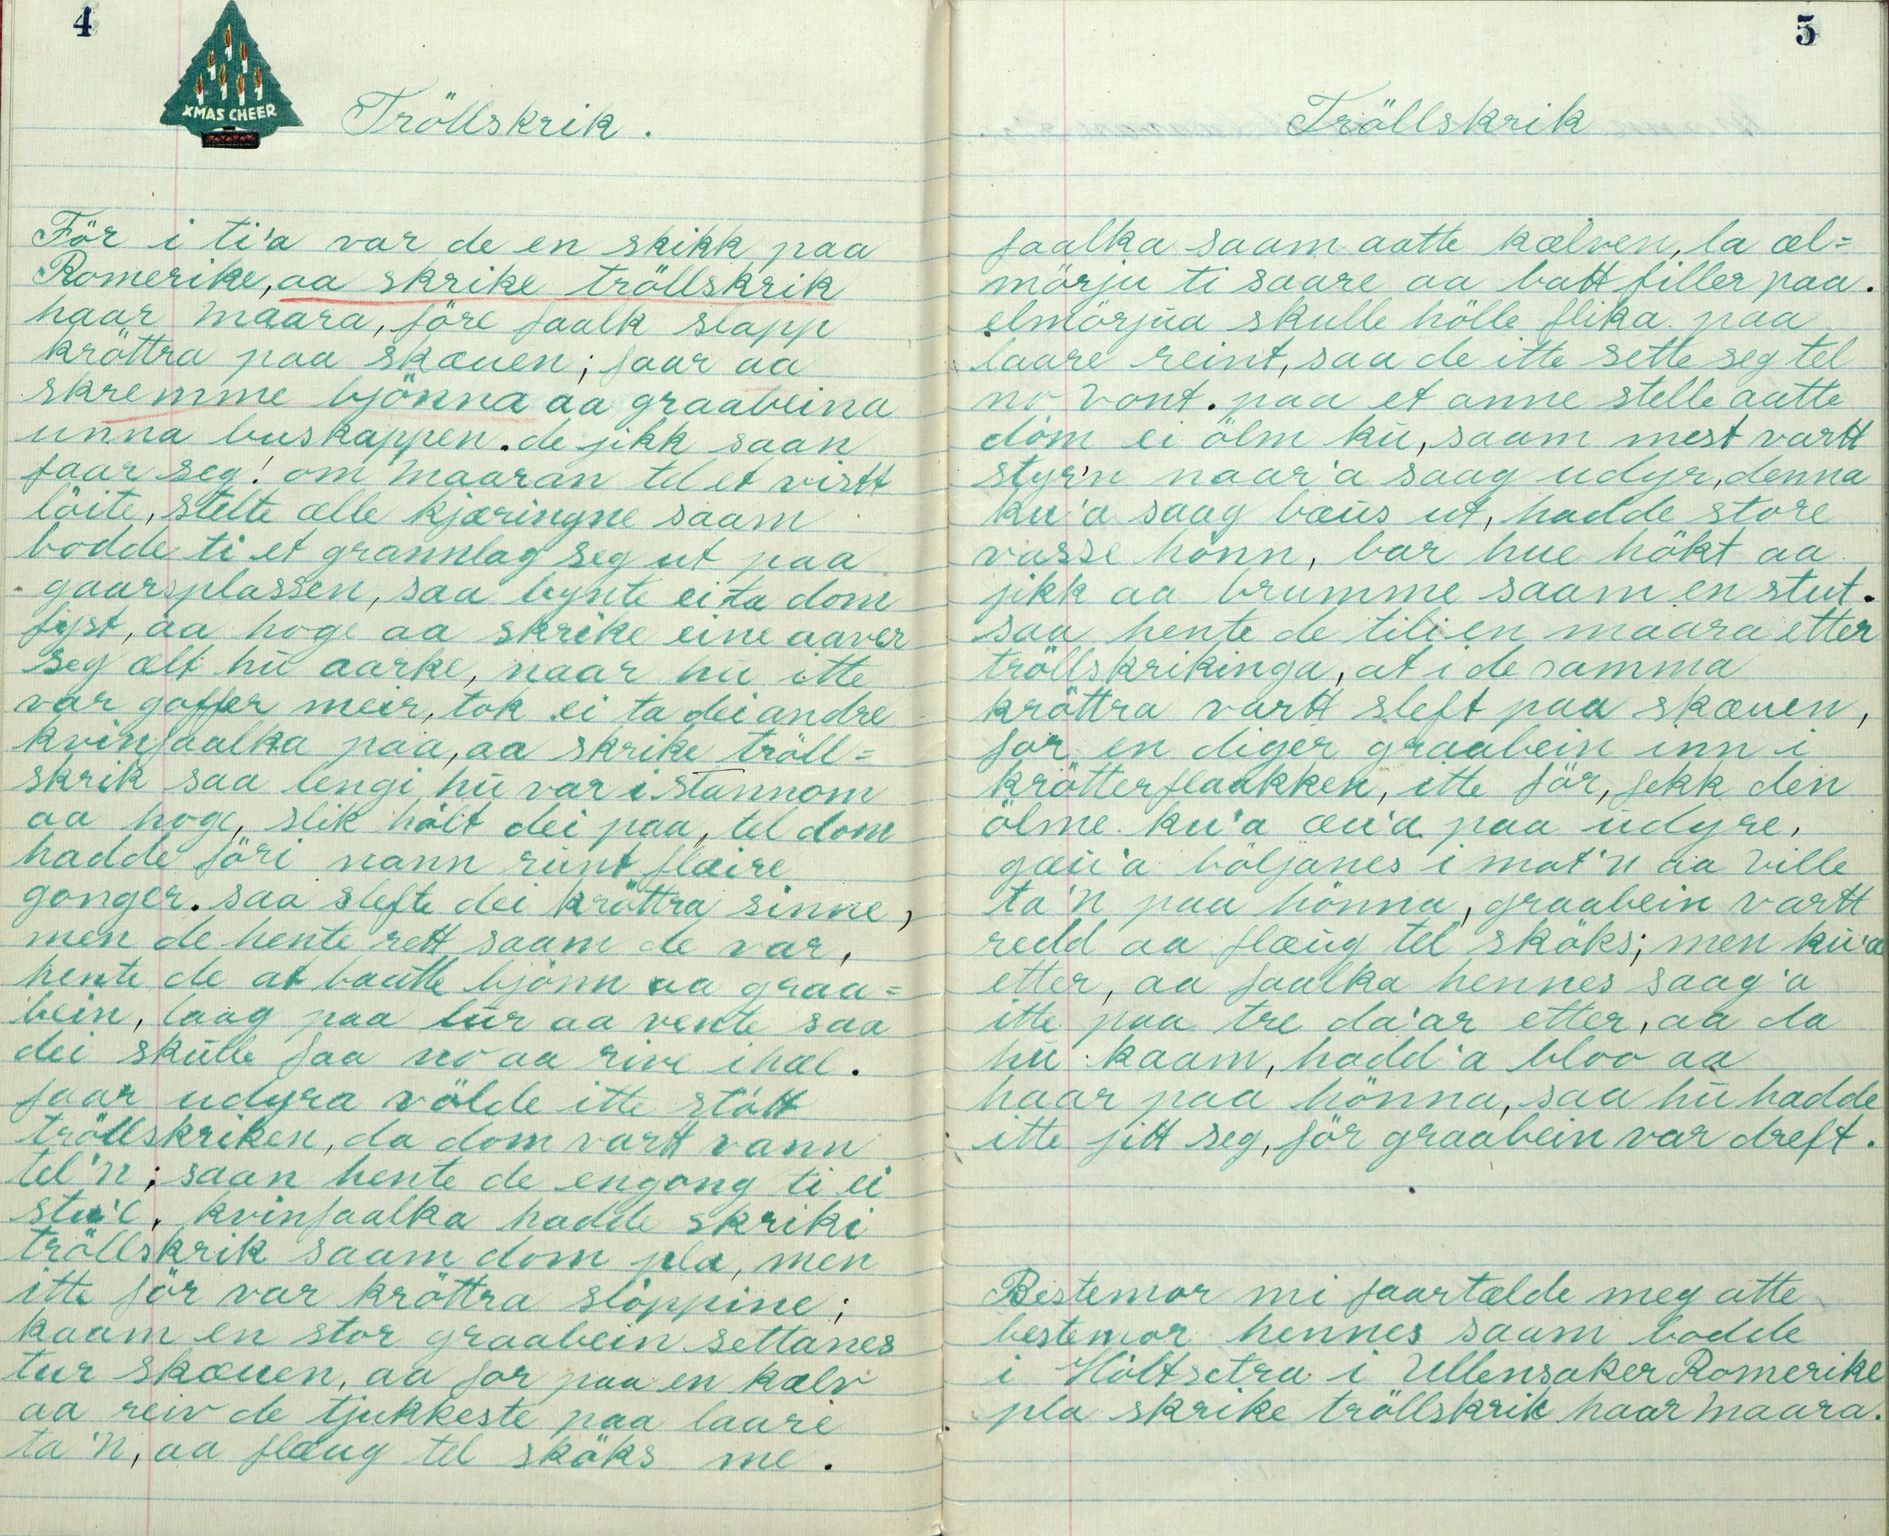 4
XMAS CHEER
Tröllskrik.
För i ti'a var de en skikk paa
Romerike, aa skrike tröllskrik
haar maara, före faalk slapp
kröttra paa skæuen; faar aa
skremme bjönna aa graabeina
unna buskappen. de jikk saan
faar seg! om maaran tel et vistt
löite, stelte ælle kjæringne saam
bodde ti et grannlag seg ut paa
gaarsplassen, saa bynte ei ta dom
fyst, aa hoge aa skrike eine aaver
seg ælt hu aarke, naar hu itte
var goffer meir, tok ei ta dei andre
kvinfaalka paa, aa skrike tröll=
skrik saa lengi hu var i stannom
aa hoge, slik hölt dei paa, tel dom
hadde föri nann runt flæire
gonger. saa slefte dei kröttra sinne,
men de hente rett saam de var,
hente de at baatte bjönn aa graa=
bein, laag paa lur aa vente saa
dei skulle faa no aa rive ihæl.
faar udyra völde itte stött
tröllskriken, da dom vartt vann
tel'n; saan hente de engong ti ei
stu'l, kvinfaalka hadde skriki
tröllskrik saam dom pla, men
itte för var kröttra slöppine;
kaam en stor graabein settanes
tur skæuen, aa for paa en kælv
aa reiv de tjukkeste paa laare
ta'n, aa flæug tel sköks me.
5
Tröllskrik
faalka saam aatte kælven, la æl=
mörju ti saare aa batt filler paa.
elmörjua skulle hölle flika paa
laare reint, saa de itte sette seg tel
no vont. paa et anne stelle aatte
dom ei ölm ku, saam mest vartt
styr'n naar'a saag udyr, denna
ku'a saag bæus ut, hadde store
vasse hönn, bar hue hökt aa
jikk aa brumme saam en stut.
saa hente de tili en maara etter
tröllskrikinga, at i de samma
kröttra vartt sleft paa skæuen,
for en diger graabein inn i
krötterflaakken, itte för, fekk den
ölme ku'a æu'a paa udyre,
gæu'a böljanes i mot'n aa ville
ta'n paa hönna, graabein vartt
redd aa flæug tel sköks; men ku'a
etter, aa faalka hennes saag'a
itte paa tre da'ar etter, aa da
hu kaam, hadd'a bloo aa
haar paa hönna, saa hu hadde
itte jitt seg, för graabein var dreft.
Bestemor mi faartælde meg atte
bestemor hennes saam bodde
i Höltsetra i Ullensaker Romerike
pla skrike tröllskrik haar maara.